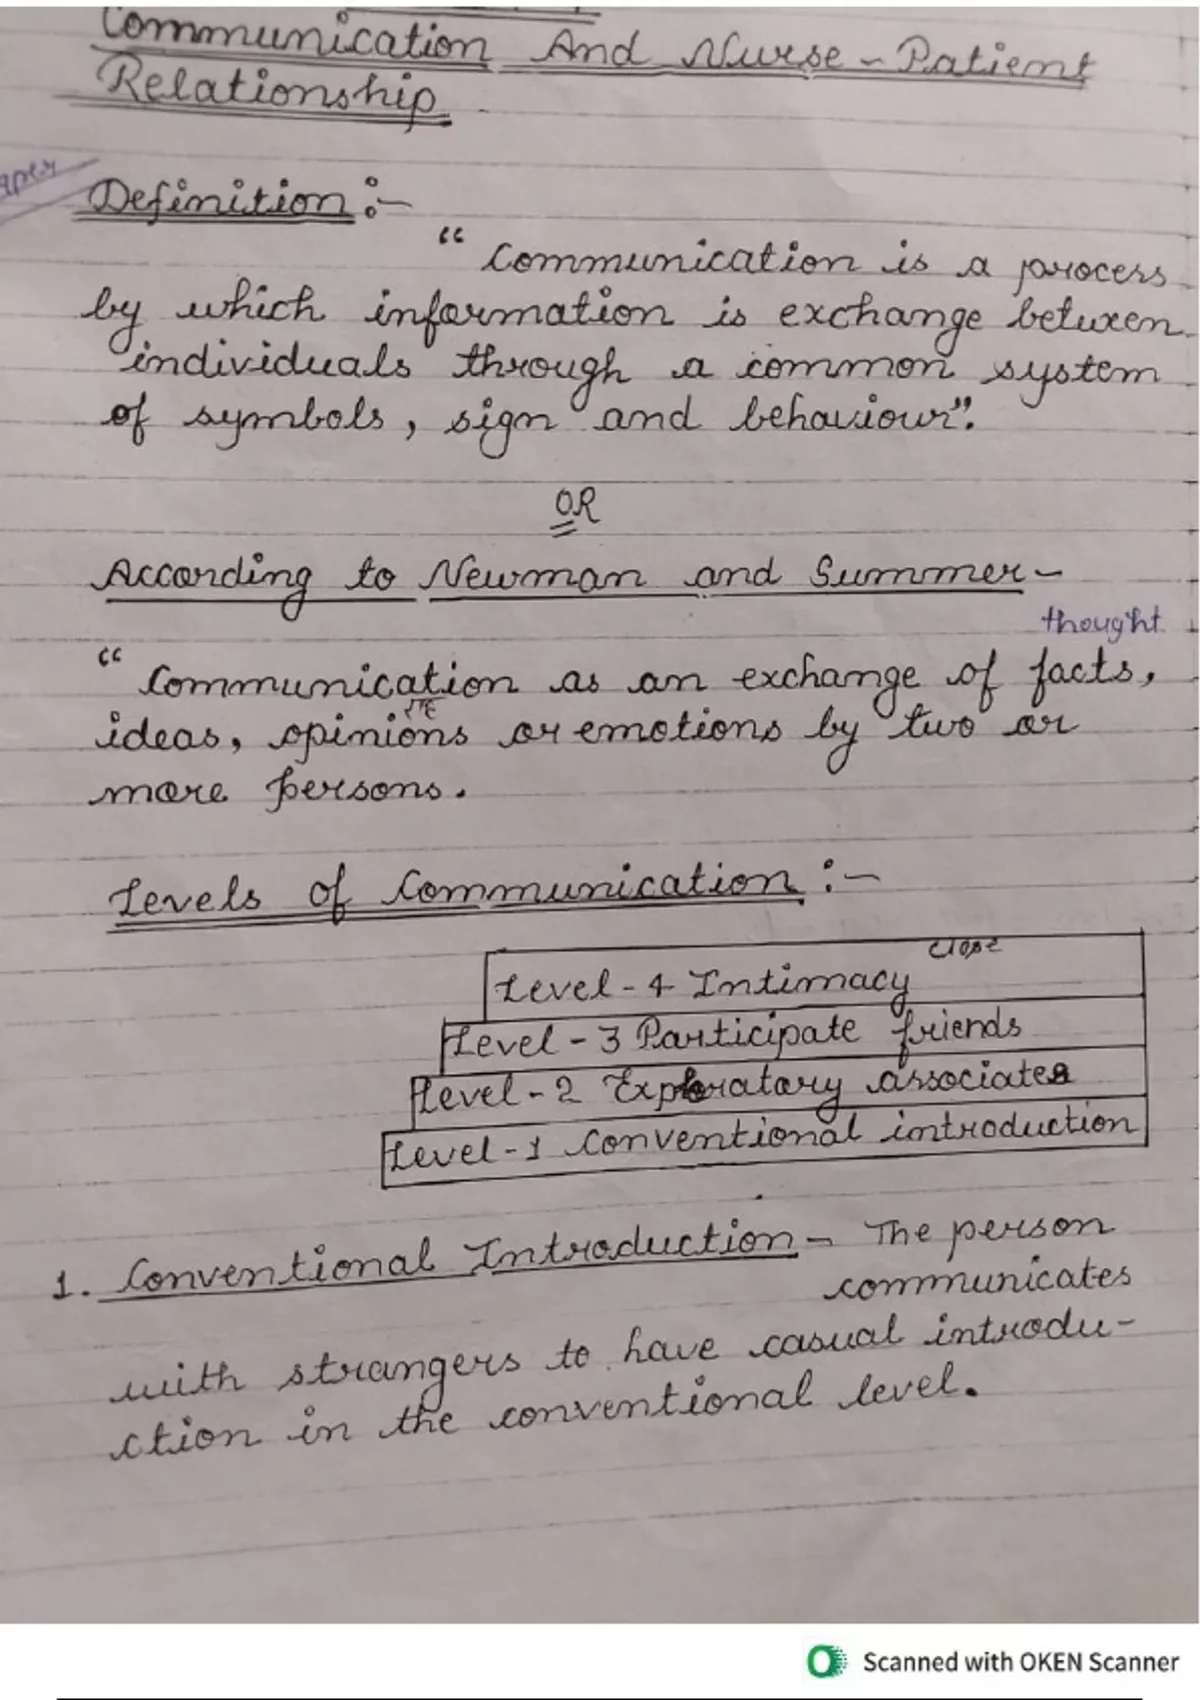 Communication And Nurse - Patient
Relationship
Definition :-
“ Communication is a process
by which information is exchange between
individuals through a common system
of symbols, sign and behaviour”.
OR
According to Newman and Summer -
thought
“ Communication as an exchange of facts,
ideas, opinions or emotions by two or
more persons.
Levels of Communication :-
close
Level - 4 Intimacy
Level - 3 Participate friends
Level - 2 Exploratary associates
Level - 1 Conventional introduction
1. Conventional Introduction - The person
communicates
with strangers to have casual introdu-
ction in the conventional level.
Scanned with OKEN Scanner